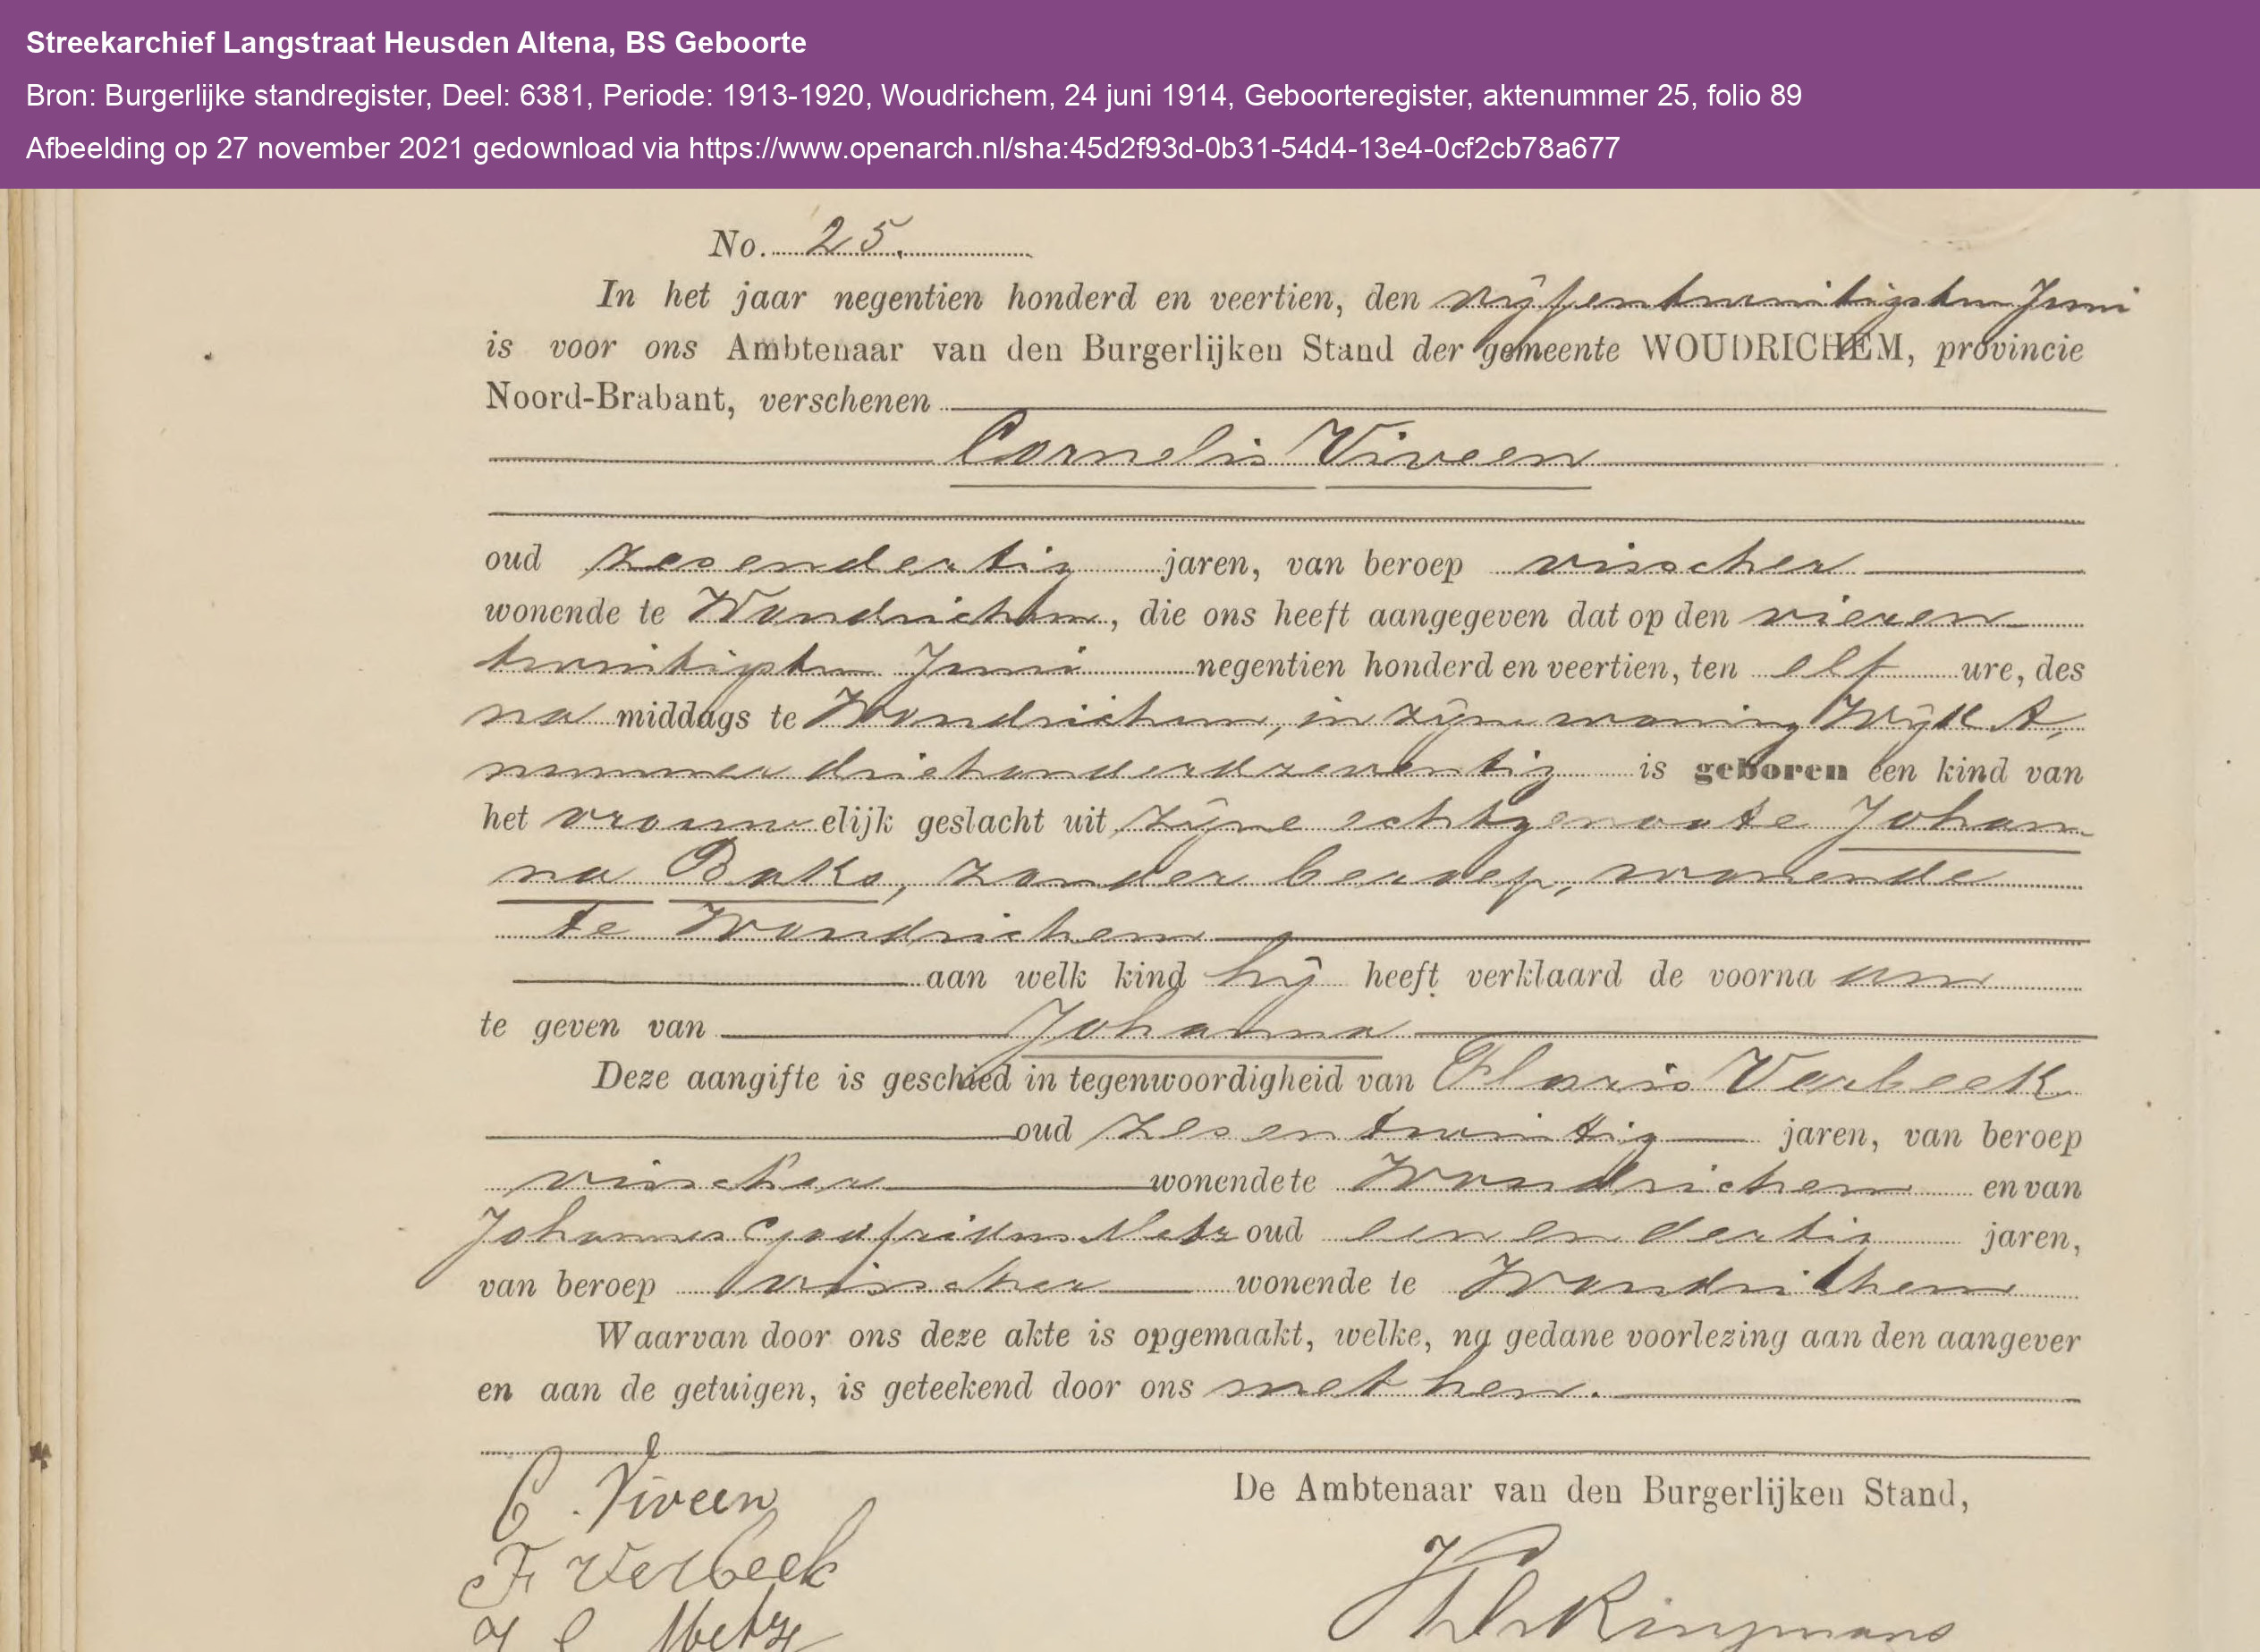 Streekarchief Langstraat Heusden Altena, BS Geboorte
Bron: Burgerlijke standregister, Deel: 6381, Periode: 1913-1920, Woudrichem, 24 juni 1914, Geboorteregister, aktenummer 25, folio 89
Afbeelding op 27 november 2021 gedownload via https://www.openarch.nl/sha:45d2f93d-0b31-54d4-13e4-0cf2cb78a677
No. 25.
In het jaar negentien honderd en veertien, den vijfentwintigsten Juni
is voor ons Ambtenaar van den Burgerlijken Stand der gemeente WOUDRICHEM, provincie
Noord-Brabant, verschenen
Cornelis Viveen
oud zesendertig jaren, van beroep visscher
wonende te Woudrichem, die ons heeft aangegeven dat op den vieren
twintigsten Juni negentien honderd en veertien, ten elf ure, des
na middags te Woudrichem, in zijne woning Wijk A,
nummer driehonderdzeventig is geboren een kind van
het vrouwelijk geslacht uit zijne echtgenoote Johan-
na Baks, zonder beroep, wonende
te Woudrichem
aan welk kind hij heeft verklaard de voorna am
te geven van Johanna
Deze aangifte is geschied in tegenwoordigheid van Floris Verbeek
oud zesentwintig jaren, van beroep
visscher wonende te Woudrichem en van
Johannes Godfridus Metz oud eenendertig jaren,
van beroep visscher wonende te Woudrichem
Waarvan door ons deze akte is opgemaakt, welke, na gedane voorlezing aan den aangever
en aan de getuigen, is geteekend door ons met hen.
C. Viveen
De Ambtenaar van den Burgerlijken Stand,
F Verbeek
Metz